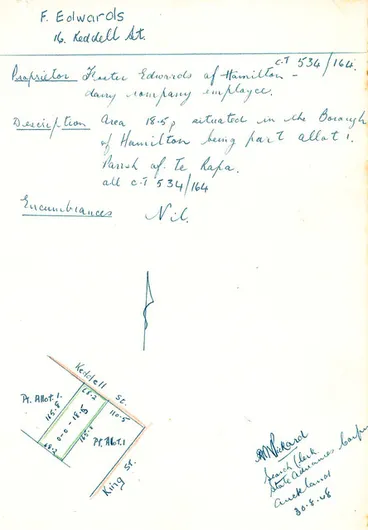 F. Edwards
16. Keddell St.
C.T 534/164.
Proprietor Foster Edwards of Hamilton -
dairy company employee.
Description Area 18.5p situated in the Borough
of Hamilton being part allot 1.
Parish of Te Rapa.
all C.T 534/164
Encumbrances Nil.
Keddell St.
68.2
Pt. Allot. 1.
165.8
0-0-18.5
165.1
110.5
Pt. Allot. 1
68.2
King St.
Search Clerk
State Advances Corpn
Auckland
30.8.48